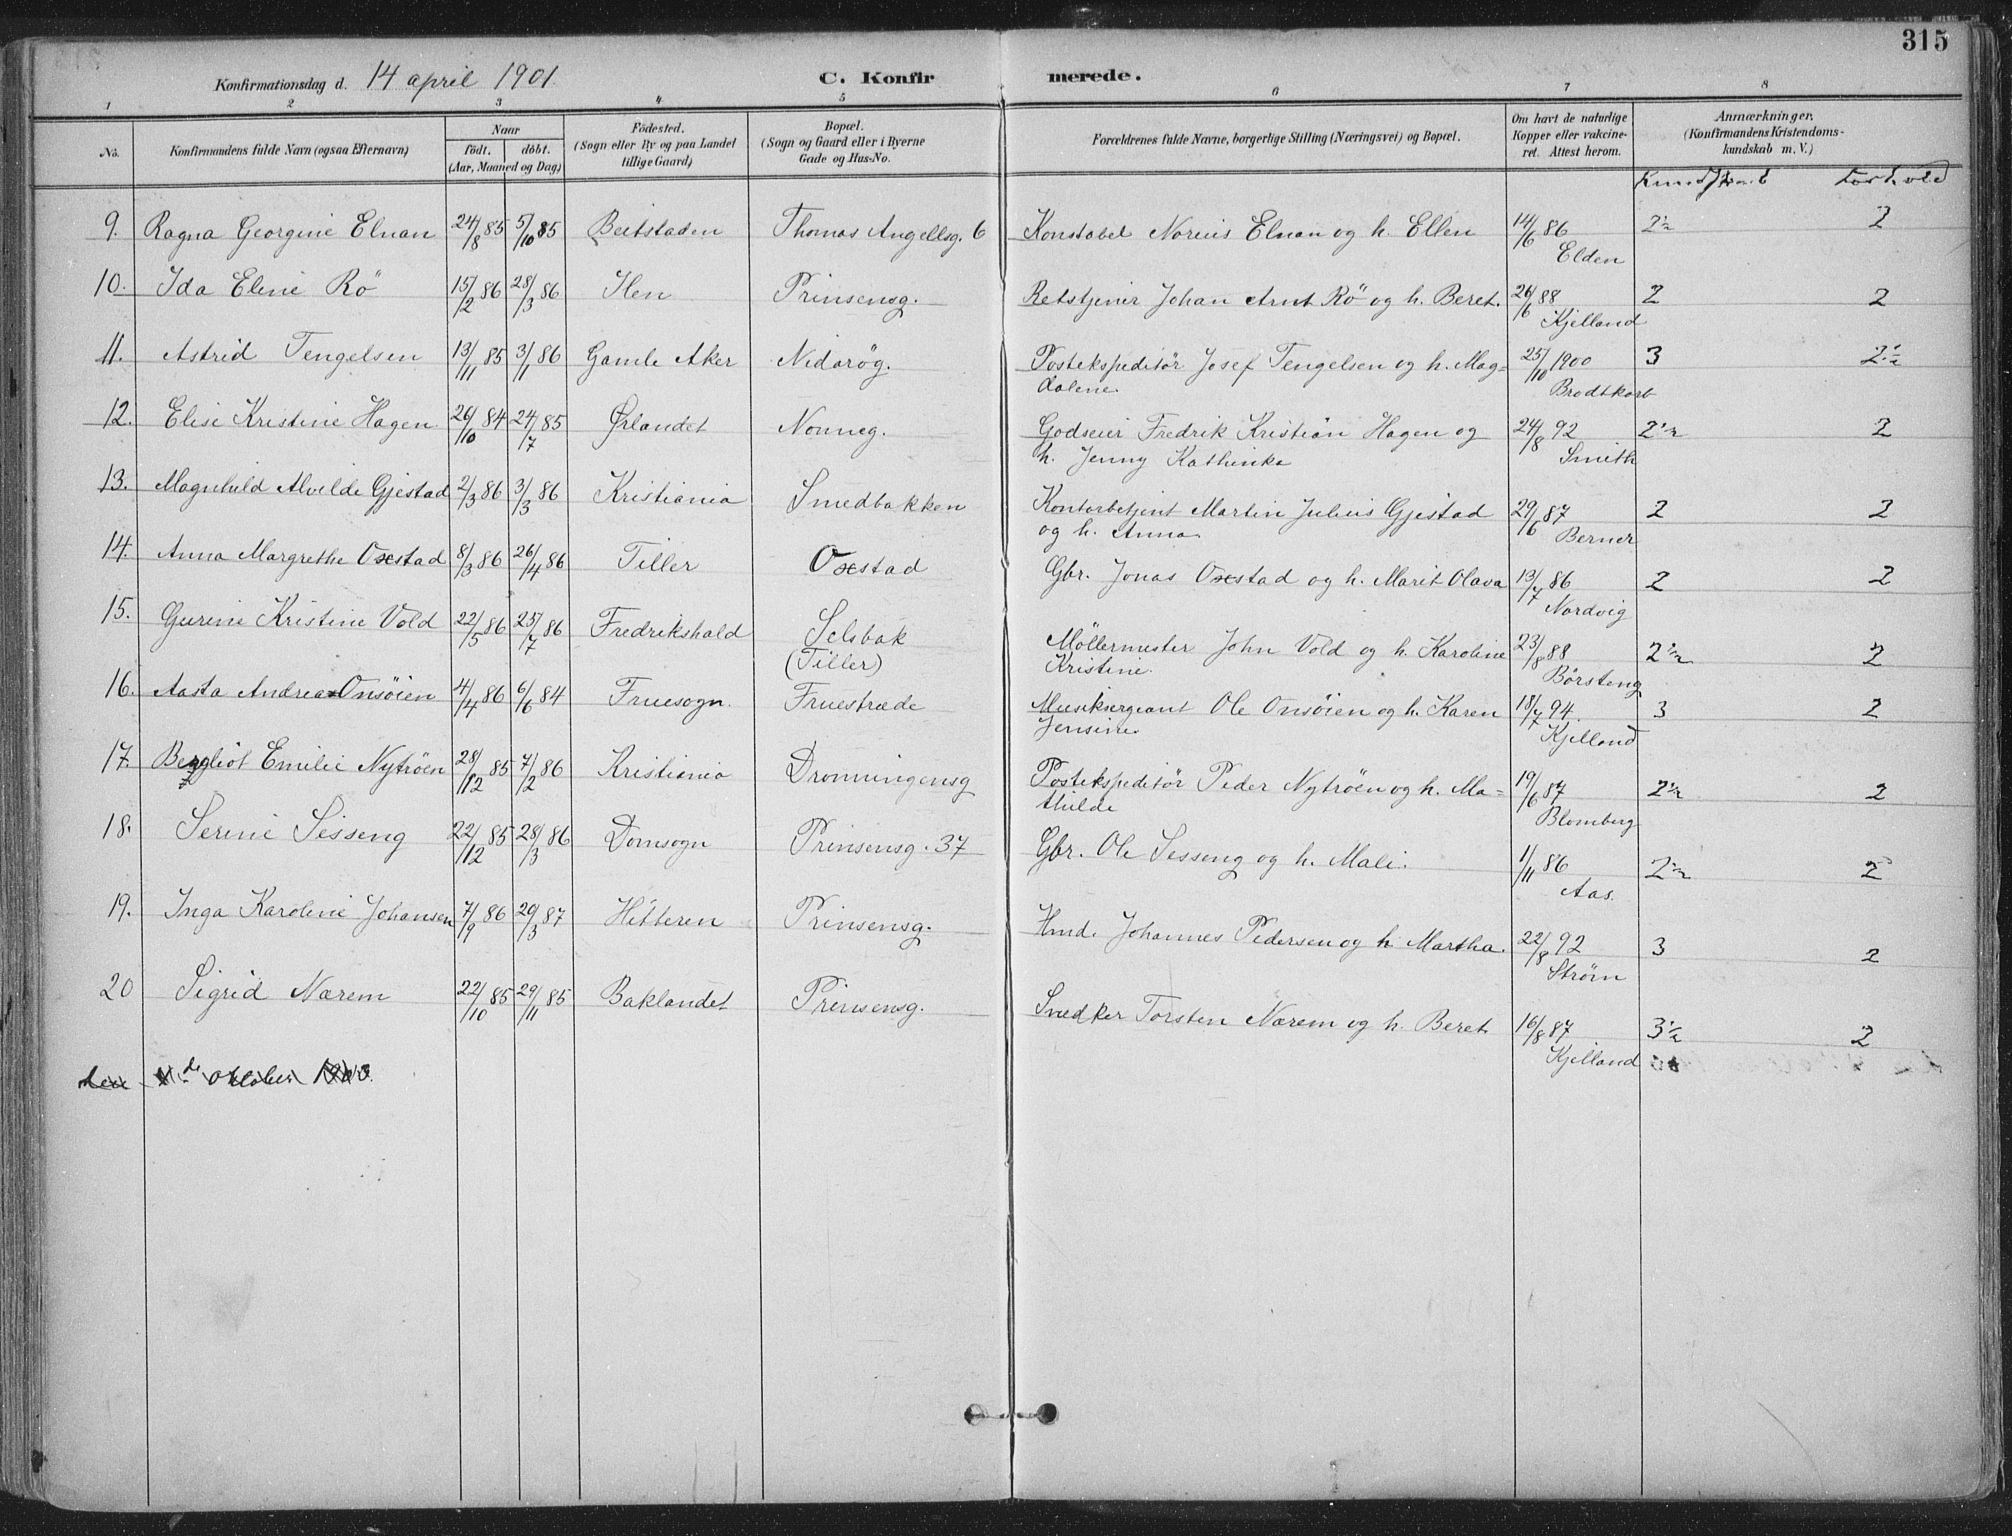 315
Konfirmationsdag d. 14 april 1901. C. Konfirmerede.
1 2 3 4 5 6 7 8
No. Konfirmandens fulde Navn (ogsaa Efternavn) Naar födt. döbt. (Aar, Maaned og Dag) Födested. (Sogn eller By og paa Landet tillige Gaard) Bopæl. (Sogn og Gaard eller i Byerne Gade og Hus-No. Forældrenes fulde Navne, borgerlige Stilling (Næringsvei) og Bopæl. Om havt de naturlige Kopper eller vakcineret. Attest herom. Anmærkninger, (Konfirmandens Kristendomskundskab m. V.)
Kundskab Forhold
9. Ragna Georgine Elnan 24/8 85 5/10 85 Beitstaden Thomas Angellsg. 6 Konstabel Norius Elnan og h. Ellen 14/6 86 Elden 2½ 2
10. Ida Eline Rö 15/2 86 28/3 86 Ilen Prinsensg. Retstjener Johan Arnt Rö og h. Beret. 26/6 88 Kjelland 2 2
11. Astrid Tengelsen 13/11 85 3/1 86 Gamle Aker Nidarög. Postekspeditör Josef Tengelsen og h. Mag=
dalene. 25/10 1900 Brodtkorb 3 2½
12. Elise Kristine Hagen 26/10 84 24/7 85 Ørlandet Nonneg. Godseier Fredrik Kristian Hagen og
h. Jenny Kathinka 24/8 92 Smith 2½ 2
13. Magnhild Alvilde Gjestad 2/3 86 3/3 86 Kristiania Smedbakken Kontorbetjent Martin Julius Gjestad
og h. Anna 29/6 87 Berner 2 2
14. Anna Margrethe Oxstad 8/3 86 26/4 86 Tiller Oxstad Gbr. Jonas Oxstad og h. Marit Olava 13/7 86 Nordvig 2 2
15. Gurine Kristine Vold 22/5 86 25/7 86 Fredrikshald Selsbak
(Tiller) Möllermester John Vold og h. Karoline
Kristine. 23/8 88 Börsteng 2½ 2
16. Aasta Andrea Onsöien 4/4 86 6/6 84 Fruesogn. Fruestræde Musiksergeant Ole Onsöien og h. Karen
Jensine 18/7 94. Kjelland 3 2
17. Bergliot Emilie Nytröen 28/12 85 7/2 86 Kristiania Dronningensg Postekspeditör Peder Nytröen og h. Ma=
thilde 19/6 87 Blomberg 2½ 2
18. Serine Sesseng 22/12 85 28/3 86 Domsogn Prinsensg. 37 Gbr. Ole Sesseng og h. Mali. 1/11 86 Aas. 2½ 2
19. Inga Karoline Johansen 7/9 86 29/3 87 Hitteren Prinsensg. Hmd. Johannes Pedersen og h Martha. 22/8 92 Ström 3 2
20 Sigrid Nærem 22/10 85 29/11 85 Baklandet Prinsensg. Snedker Torsten Nærem og h. Beret 16/8 87 Kjelland 3½ 2